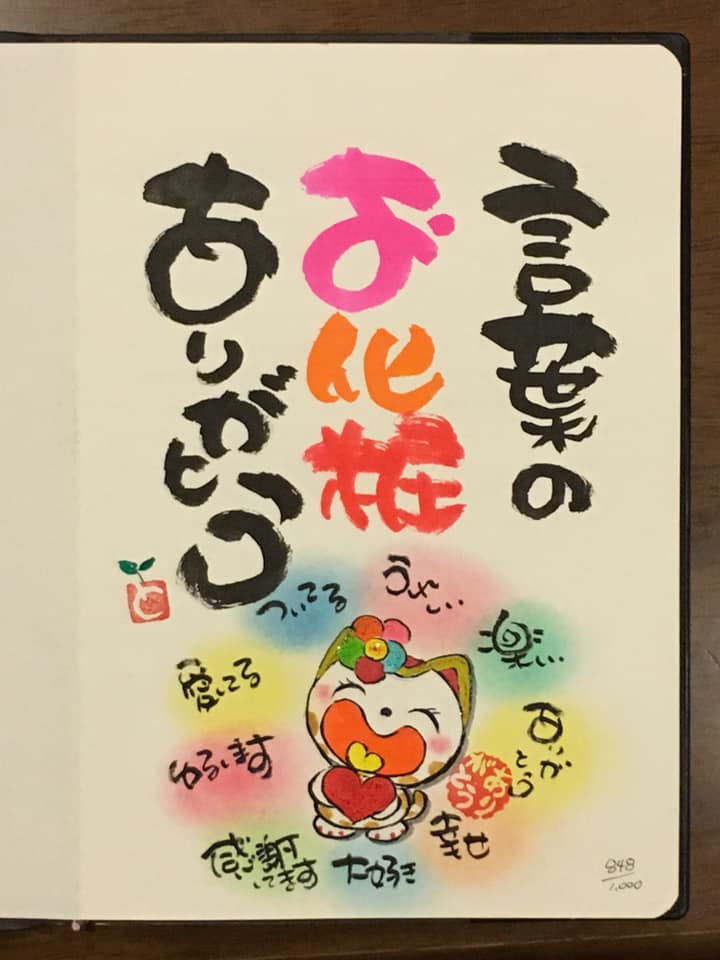 言葉の
お化粧
ありがとう
ついてる
うれしい
楽しい
ありがとう
幸せ
大好き
感謝してます
ゆるします
愛してる
ありがとう
848/1,000